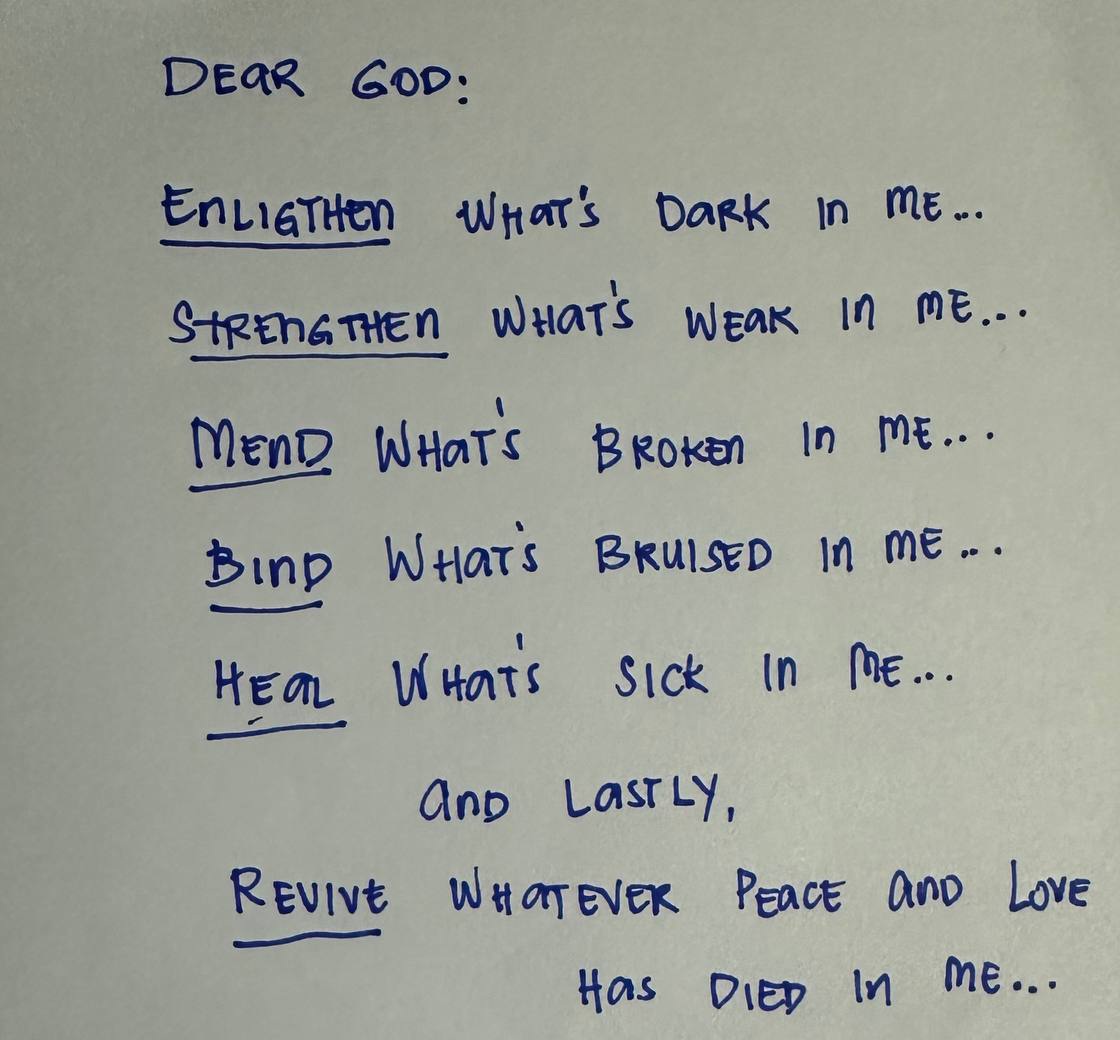 DEAR GOD:
ENLIGTHEN WHAT'S DARK IN ME...
STRENGTHEN WHAT'S WEAK IN ME...
MEND WHAT'S BROKEN IN ME...
BIND WHAT'S BRUISED IN ME...
HEAL WHAT'S SICK IN ME...
AND LASTLY,
REVIVE WHATEVER PEACE AND LOVE
HAS DIED IN ME...